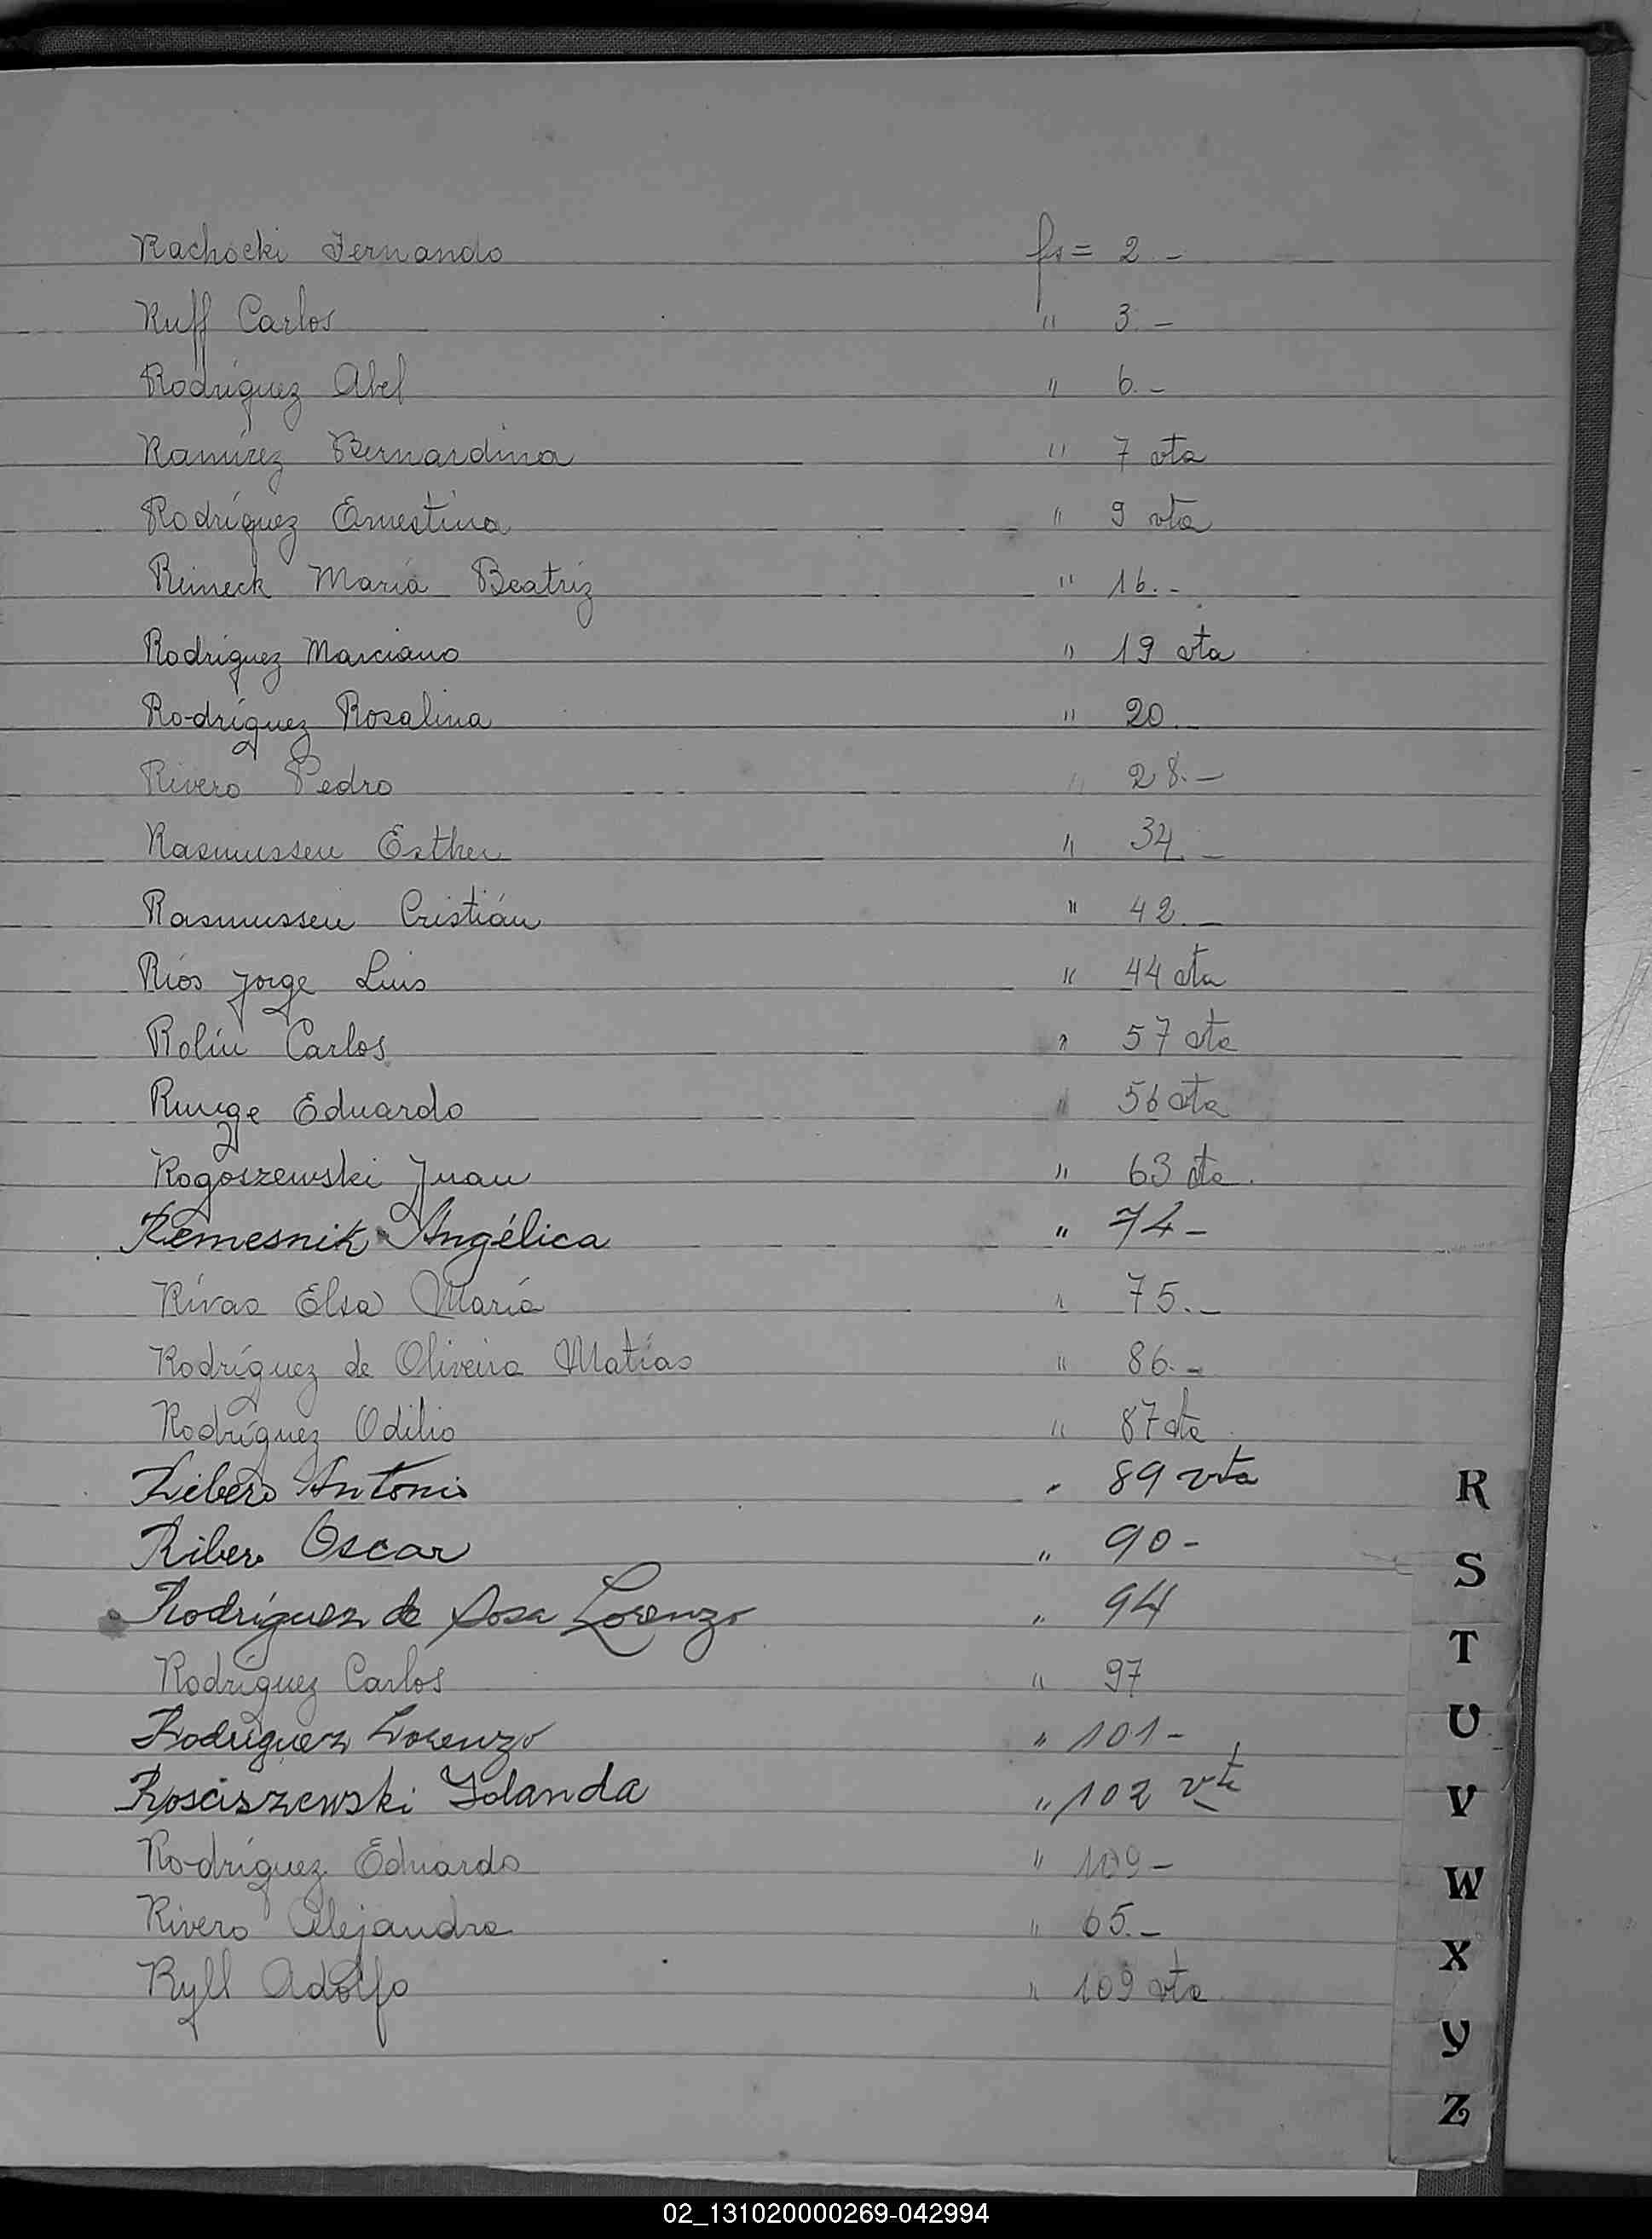 Rachocki Fernando fs = 2.-
Ruff Carlos " 3.-
Rodríguez Abel " 6.-
Ramírez Bernardina " 7 vta
Rodríguez Ernestina " 9 vta
Reineck María Beatriz " 16.-
Rodríguez Marciano " 19 vta
Rodríguez Rosalina " 20.-
Rivero Pedro " 28.-
Rasmussen Esther " 34.-
Rasmussen Cristián " 42.-
Ríos Jorge Luis " 44 vta
Rolín Carlos " 57 vta
Runge Eduardo " 56 vta
Rogoszewski Juan " 63 vta.
Remesnik Angélica " 74-
Rívas Elsa María " 75.-
Rodríguez de Oliveira Matías " 86.-
Rodríguez Odilio " 87 vta
Ribero Antonio " 89 vta
Ribero Oscar " 90-
Rodríguez de Sosa Lorenzo " 94
Rodríguez Carlos " 97
Rodríguez Lorenzo " 101-
Rosciszewski Yolanda " 102 vta
Rodríguez Eduardo " 109-
Rivero Alejandra " 65.-
Ryll Adolfo " 109 vta
R
S
T
U
V
W
X
Y
Z
02_131020000269-042994